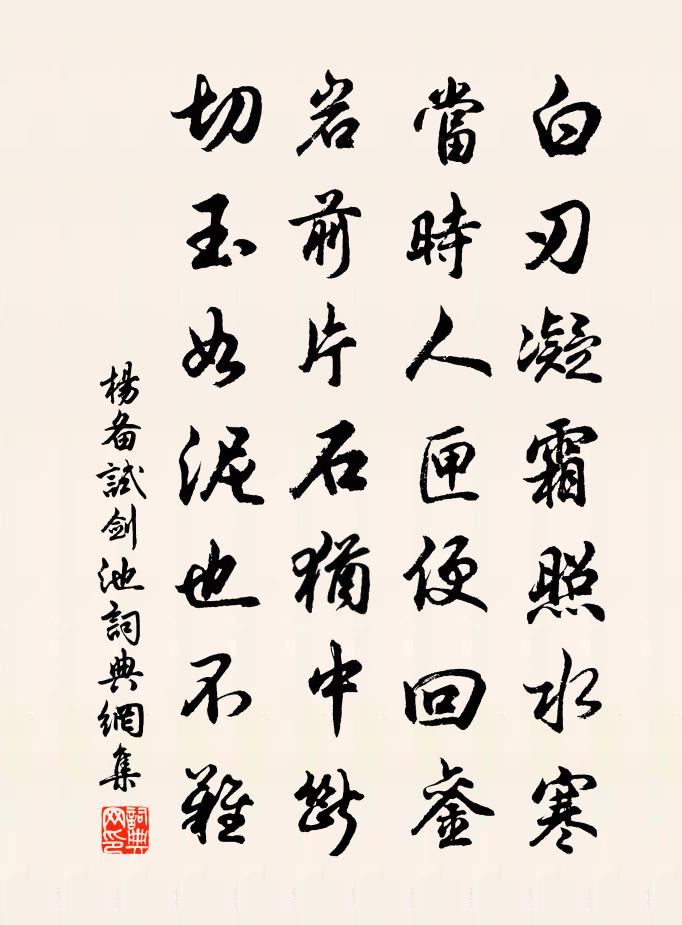 白刃凝霜照水寒
當時人匣便回銮
岩前片石猶中斷
切玉如泥也不難
楊备試劍池詞典網集
詞典
网印